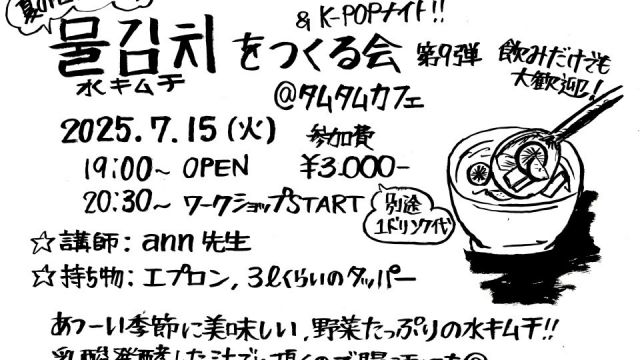 & K-POPナイト!!
물김치をつくる会 第9弾 飲みだけでも
水キムチ 大歓迎!
@タムタムカフェ
2025.7.15(火) 参加費
19:00~ OPEN ¥3.000-
20:30~ ワークショップSTART 別途
1ドリンク代
☆講師: ann先生
☆持ち物: エプロン, 3ℓくらいのタッパー
あつーい季節に美味しい, 野菜たっぷりの水キムチ!!